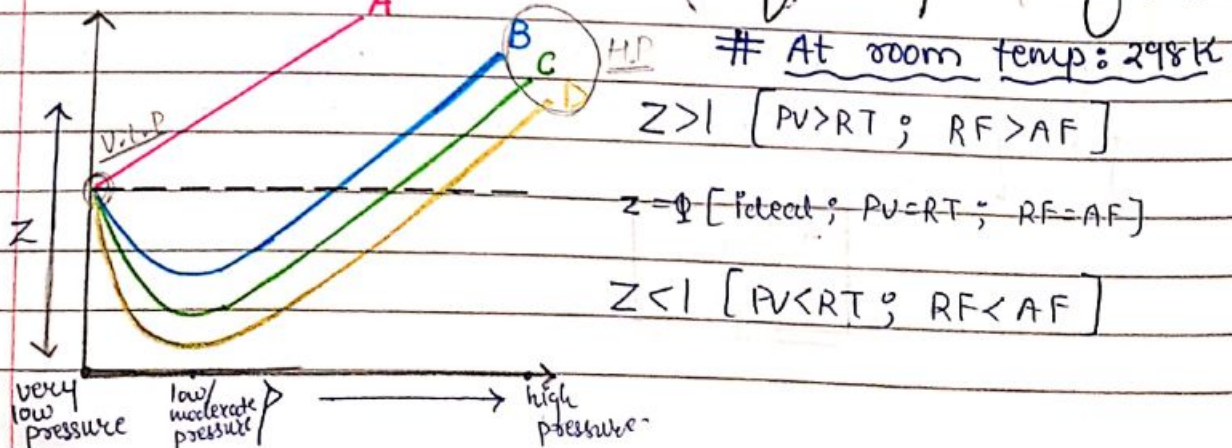 A
B
H.P
# At room temp: 298K
C
D
Z>1 [PV>RT ; RF>AF]
V.L.P
Z=1 [ideal ; PV=RT ; RF=AF]
Z
Z<1 [PV<RT ; RF<AF]
very low pressure
low/ moderate pressure
P
high pressure